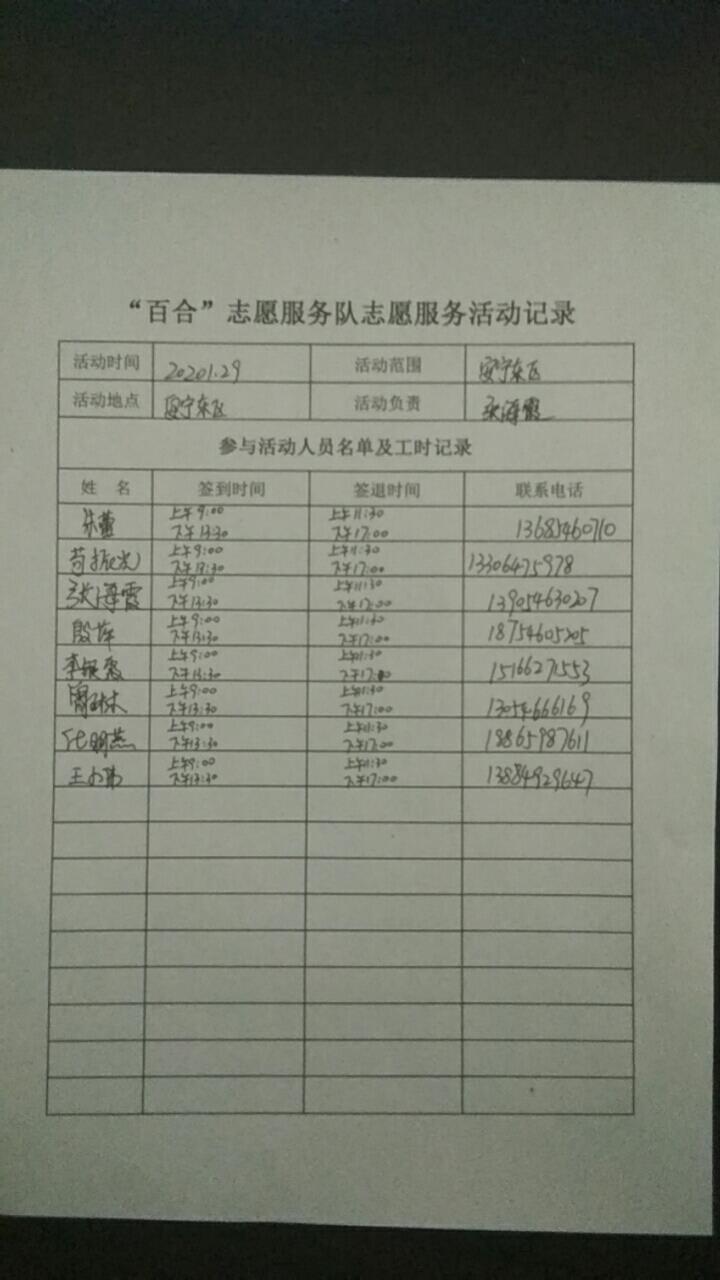 “百合”志愿服务队志愿服务活动记录
活动时间 2020.1.29 活动范围 安宁东区
活动地点 安宁东区 活动负责 张海霞
参与活动人员名单及工时记录
姓 名 签到时间 签退时间 联系电话
朱蕾 上午9:00 上午11:30 13685460710
下午13:30 下午17:00
苟振光 上午9:00 上午11:30 13306475978
下午13:30 下午17:00
张海霞 上午9:00 上午11:30 139054630207
下午13:30 下午17:00
殷萍 上午9:00 上午11:30 18754605205
下午13:30 下午17:00
李银秀 上午9:00 上午11:30 15166271553
下午13:30 下午17:00
上午9:00 上午11:30 13054666169
下午13:30 下午17:00
明燕 上午9:00 上午11:30 18865987611
下午13:30 下午17:00
王小弟 上午9:00 上午11:30 13884929647
下午13:30 下午17:00